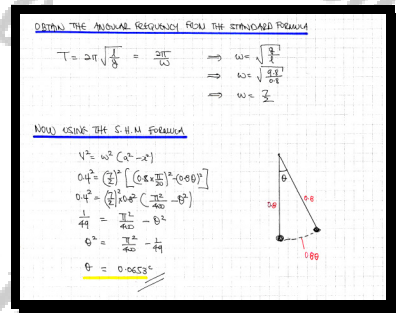 OBTAIN THE ANGULAR FREQUENCY FROM THE STANDARD FORMULA
T = 2π √(l/g) = 2π/ω ⇒ ω = √(g/l)
⇒ ω = √(9.8/0.8)
⇒ ω = 7/2
NOW USING THE S.H.M FORMULA
V² = ω² (a² - x²)
0.4² = (7/2)² [(0.8 × π/20)² - (0.8θ)²]
0.4² = (7/2)² × 0.8² (π²/400 - θ²)
1/49 = π²/400 - θ²
θ² = π²/400 - 1/49
θ = 0.0653ᶜ
θ
0.8
0.8
0.8θ